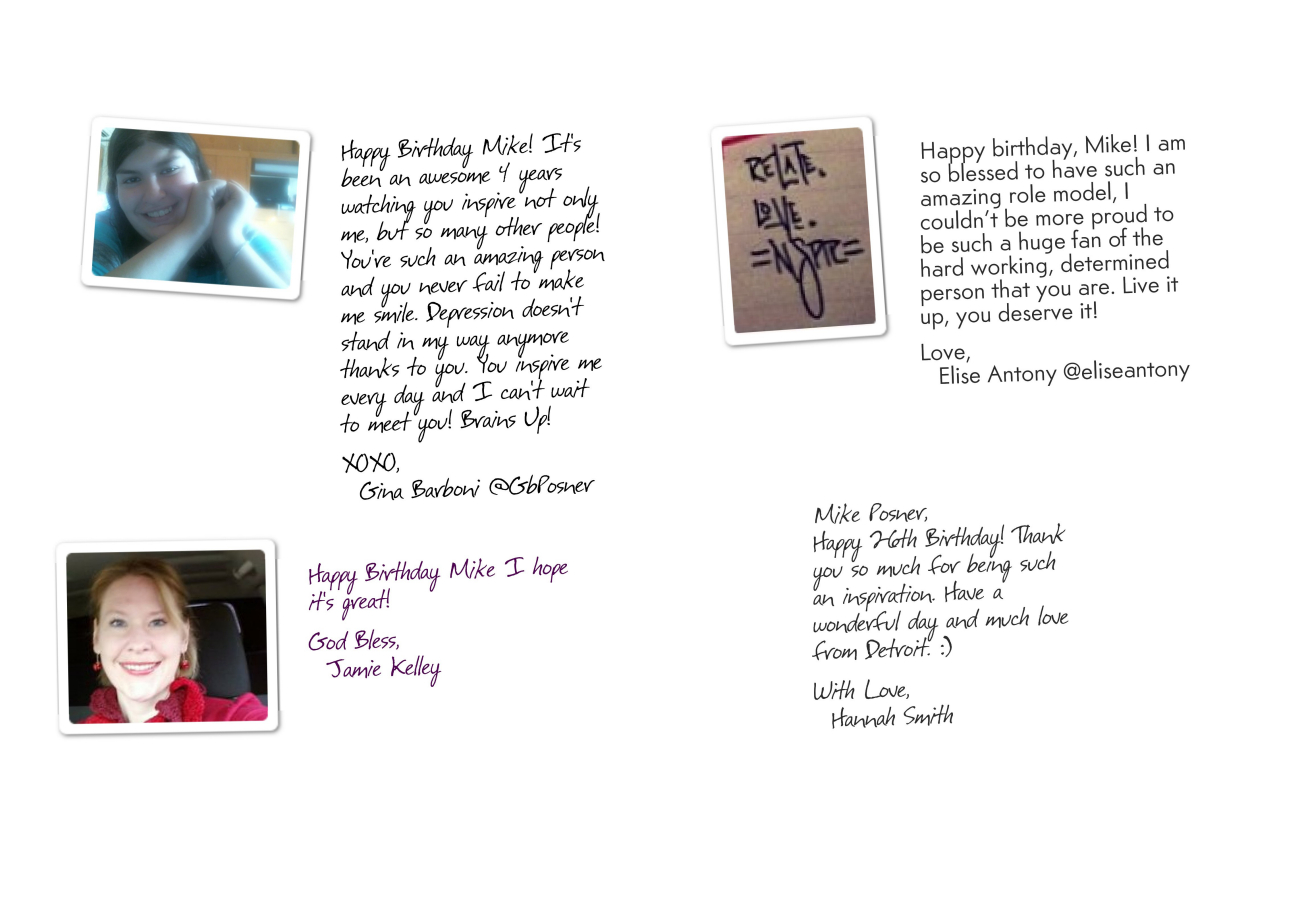 Happy Birthday Mike! It's
been an awesome 4 years
watching you inspire not only
me, but so many other people!
You're such an amazing person
and you never fail to make
me smile. Depression doesn't
stand in my way anymore
thanks to you. You inspire me
every day and I can't wait
to meet you! Brains Up!
XOXO,
Gina Barboni @GbPosner
Happy Birthday Mike I hope
it's great!
God Bless,
Jamie Kelley
RELATE.
LOVE.
=NSPIRE=
Happy birthday, Mike! I am
so blessed to have such an
amazing role model, I
couldn't be more proud to
be such a huge fan of the
hard working, determined
person that you are. Live it
up, you deserve it!
Love,
Elise Antony @eliseantony
Mike Posner,
Happy 26th Birthday! Thank
you so much for being such
an inspiration. Have a
wonderful day and much love
from Detroit. :)
With Love,
Hannah Smith